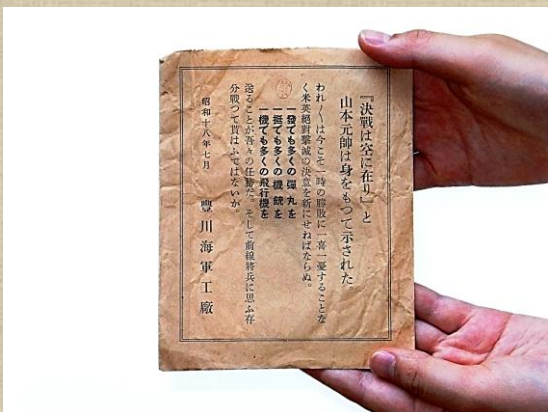 『決戰は空に在り』と
山本元帥は身をもつて示された
われ〳〵は今こそ一時の勝敗に一喜一憂することな
く米英絕對擊滅の決意を新にせねばならぬ。
一發でも多くの彈丸を
一挺でも多くの機銃を
一機でも多くの飛行機を
送ることが吾々の任務だ。そして前線將兵に思ふ存
分戰つて貰はふではないか。
昭和十八年七月
豐川海軍工廠